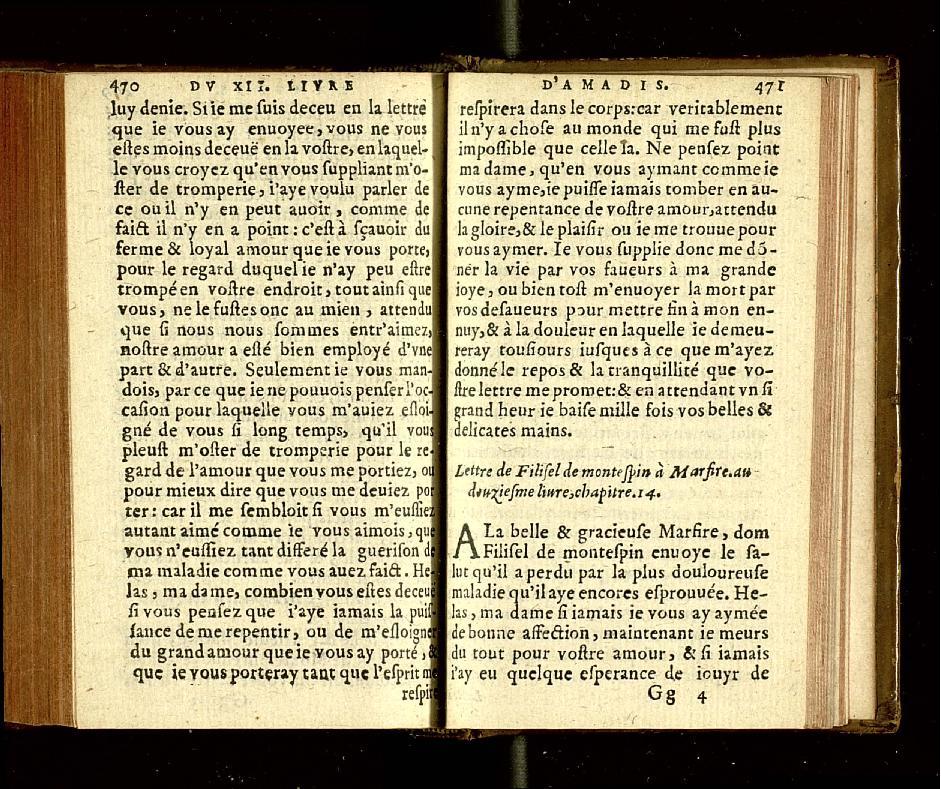 470 DV XII. LIVRE
luy denie. Si ie me ſuis deceu en la lettre
que ie vous ay enuoyee, vous ne vous
eſtes moins deceuë en la voſtre, en laquel-
le vous croyez qu'en vous ſuppliant m'o-
ſter de tromperie, i'aye voulu parler de
ce ou il n'y en peut auoir, comme de
faict il n'y en a point : c'eſt à ſçauoir du
ferme & loyal amour que ie vous porte,
pour le regard duquel ie n'ay peu eſtre
trompé en voſtre endroit, tout ainſi que
vous, ne le fuſtes onc au mien, attendu
que ſi nous nous ſommes entr'aimez,
noſtre amour a eſté bien employé d'vne
part & d'autre. Seulement ie vous man-
dois, par ce que ie ne pouuois penſer l'oc-
caſion pour laquelle vous m'auiez eſloi-
gné de vous ſi long temps, qu'il vous
pleuſt m'oſter de tromperie pour le re-
gard de l'amour que vous me portiez, ou
pour mieux dire que vous me deuiez por
ter: car il me ſembloit ſi vous m'euſſiez
autant aimé comme ie vous aimois, que
vous n'euſſiez tant differé la gueriſon de
ma maladie comme vous auez faict. He-
las, ma dame, combien vous eſtes deceuë
ſi vous penſez que i'aye iamais la puiſ-
ſance de me repentir, ou de m'eſloigner
du grand amour que ie vous ay porté, &
que ie vous porteray tant que l'eſprit me
reſpi
D'AMADIS. 471
reſpirera dans le corps: car veritablement
il n'y a choſe au monde qui me fuſt plus
impoſſible que celle la. Ne penſez point
ma dame, qu'en vous aymant comme ie
vous ayme, ie puiſſe iamais tomber en au-
cune repentance de voſtre amour, attendu
la gloire, & le plaiſir ou ie me trouue pour
vous aymer. Ie vous ſupplie donc me dõ-
ner la vie par vos faueurs à ma grande
ioye, ou bien toſt m'enuoyer la mort par
vos defaueurs pour mettre fin à mon en-
nuy, & à la douleur en laquelle ie demeu-
reray touſiours iuſques à ce que m'ayez
donné le repos & la tranquillité que vo-
ſtre lettre me promet: & en attendant vn ſi
grand heur ie baiſe mille fois vos belles &
delicates mains.
Lettre de Filiſel de monteſpin à Marfire. au
douzieſme liure, chapitre. 14.
A La belle & gracieuſe Marfire, dom
Filiſel de monteſpin enuoye le ſa-
lut qu'il a perdu par la plus douloureuſe
maladie qu'il aye encores eſprouuée. He-
las, ma dame ſi iamais ie vous ay aymée
de bonne affection, maintenant ie meurs
du tout pour voſtre amour, & ſi iamais
i'ay eu quelque eſperance de iouyr de
Gg 4